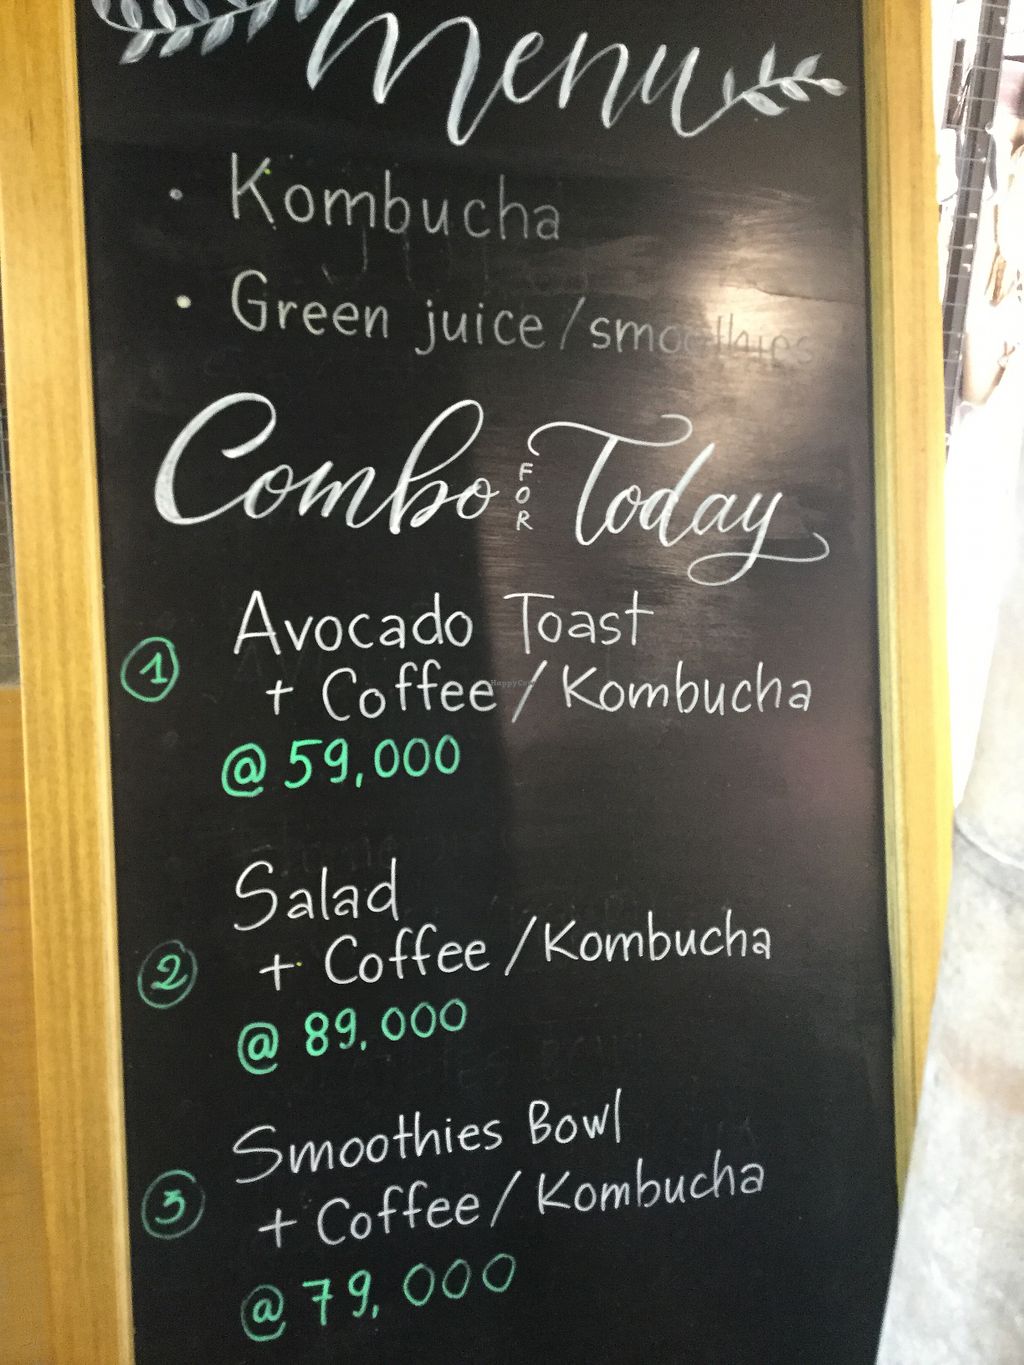 Menu
• Kombucha
• Green juice/smoothies
Combo FOR Today
1 Avocado Toast
+ Coffee/Kombucha
@ 59,000
Salad
2 + Coffee/Kombucha
@ 89,000
Smoothies Bowl
3 + Coffee/Kombucha
@ 79,000
HappyCow